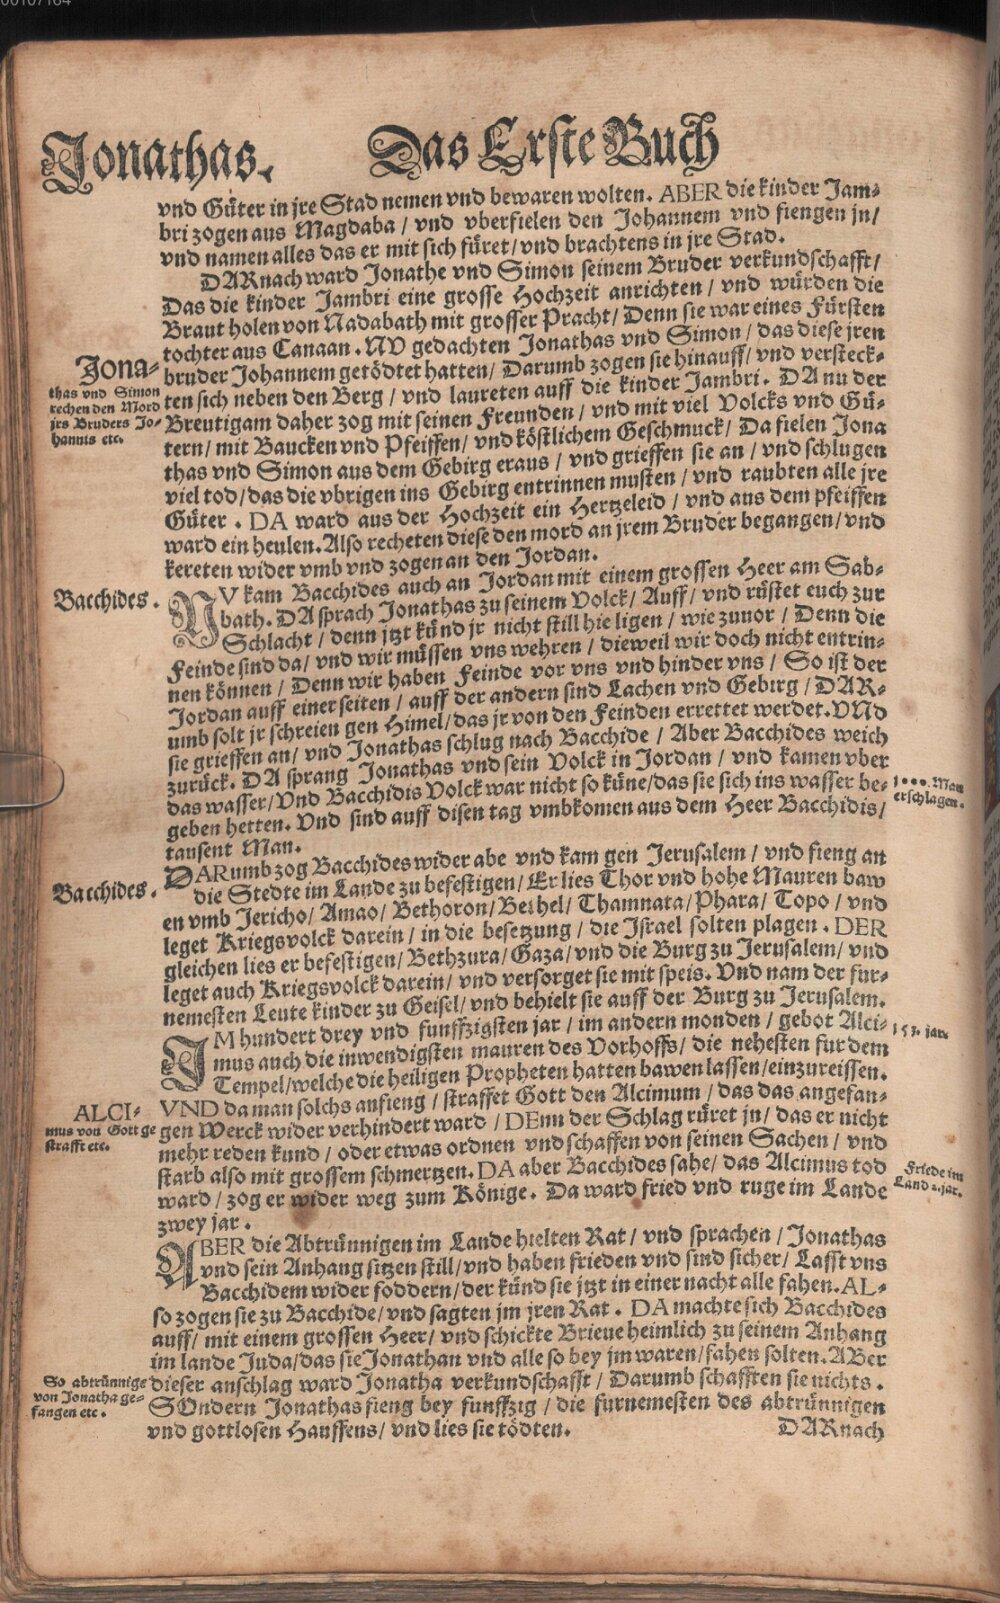 00107164
Jonathas.
Das Erste Buch
vnd Güter in jre Stad nemen vnd bewaren wolten. ABER die kinder Jam-
bri zogen aus Magdaba / vnd vberfielen den Johannem vnd fiengen jn /
vnd namen alles das er mit sich füret / vnd brachtens in jre Stad.
DARnach ward Jonathe vnd Simon seinem Bruder verkundschafft /
Das die kinder Jambri eine grosse Hochzeit anrichten / vnd würden die
Braut holen von Nadabath mit grosser Pracht / Denn sie war eines Fürsten
tochter aus Canaan. NV gedachten Jonathas vnd Simon / das diese jren
bruder Johannem getödtet hatten / Darumb zogen sie hinauff / vnd versteck-
ten sich neben den Berg / vnd laureten auff die kinder Jambri. DA nu der
Breutigam daher zog mit seinen Freunden / vnd mit viel Volcks vnd Gü-
tern / mit Baucken vnd Pfeiffen / vnd köstlichem Geschmuck / Da fielen Jona
thas vnd Simon aus dem Gebirg eraus / vnd grieffen sie an / vnd schlugen
viel tod / das die vbrigen ins Gebirg entrinnen musten / vnd raubten alle jre
Güter. DA ward aus der Hochzeit ein Hertzeleid / vnd aus dem pfeiffen
ward ein heulen. Also recheten diese den mord an jrem Bruder begangen / vnd
kereten wider vmb vnd zogen an den Jordan.
Jona-
thas vnd Simon
rechen den Mord
jrs Bruders Jo-
hannis etc.
Bacchides.
NV kam Bacchides auch an Jordan mit einem grossen Heer am Sab-
bath. DA sprach Jonathas zu seinem Volck / Auff / vnd rüstet euch zur
Schlacht / denn jtzt künd jr nicht still hie ligen / wie zuuor / Denn die
Feinde sind da / vnd wir müssen vns wehren / dieweil wir doch nicht entrin-
nen können / Denn wir haben Feinde vor vns vnd hinder vns / So ist der
Jordan auff einer seiten / auff der andern sind Lachen vnd Gebirg / DAR-
umb solt jr schreien gen Himel / das jr von den Feinden errettet werdet. VNd
sie grieffen an / vnd Jonathas schlug nach Bacchide / Aber Bacchides weich
zurück. DA sprang Jonathas vnd sein Volck in Jordan / vnd kamen vber
das wasser / Vnd Bacchidis Volck war nicht so küne / das sie sich ins wasser be-
geben hetten. Vnd sind auff disen tag vmbkomen aus dem Heer Bacchidis /
tausent Man.
1... Man
erschlagen.
Bacchides.
DARumb zog Bacchides wider abe vnd kam gen Jerusalem / vnd fieng an
die Stedte im Lande zu befestigen / Er lies Thor vnd hohe Mauren baw
en vmb Jericho / Amao / Bethoron / Bethel / Thamnata / Phara / Topo / vnd
leget Kriegsvolck darein / in die besetzung / die Israel solten plagen. DER
gleichen lies er befestigen / Bethzura / Gaza / vnd die Burg zu Jerusalem / vnd
leget auch Kriegsvolck darein / vnd versorget sie mit speis. Vnd nam der für-
nemesten Leute kinder zu Geisel / vnd behielt sie auff der Burg zu Jerusalem.
IM hundert drey vnd funffzigsten jar / im andern monden / gebot Alci-
mus auch die inwendigsten mauren des Vorhoffs / die nehesten fur dem
Tempel / welche die heiligen Propheten hatten bawen lassen / einzureissen.
VND da man solchs anfieng / straffet Gott den Alcimum / das das angefan-
gen Werck wider verhindert ward / DEnn der Schlag rüret jn / das er nicht
mehr reden kund / oder etwas ordnen vnd schaffen von seinen Sachen / vnd
starb also mit grossem schmertzen. DA aber Bacchides sahe / das Alcimus tod
ward / zog er wider weg zum Könige. Da ward fried vnd ruge im Lande
zwey jar.
153. jar.
ALCI-
mus von Gott ge
strafft etc.
Friede im
Land 2. jar.
ABER die Abtrünnigen im Lande hielten Rat / vnd sprachen / Jonathas
vnd sein Anhang sitzen still / vnd haben frieden vnd sind sicher / Lasst vns
Bacchidem wider foddern / der künd sie jtzt in einer nacht alle fahen. AL-
so zogen sie zu Bacchide / vnd sagten jm jren Rat. DA machte sich Bacchides
auff / mit einem grossen Heer / vnd schickte Brieue heimlich zu seinem Anhang
im lande Juda / das sie Jonathan vnd alle so bey jm waren / fahen solten. ABer
dieser anschlag ward Jonatha verkundschafft / Darumb schafften sie nichts.
SOndern Jonathas fieng bey funffzig / die furnemesten des abtrünnigen
vnd gottlosen Hauffens / vnd lies sie tödten.
So abtrünnige
von Jonatha ge-
fangen etc.
DARnach